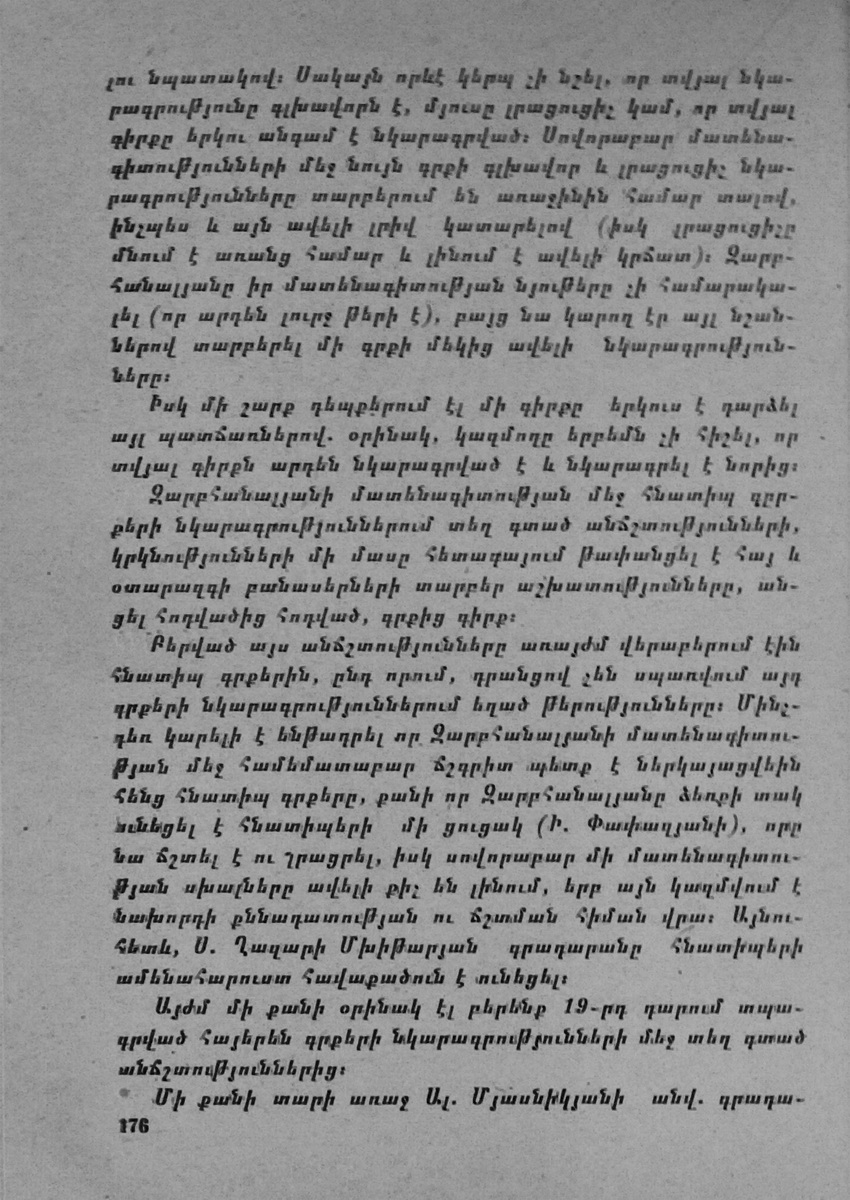 լու նպատակով։ Սակայն որևէ կերպ չի նշել, որ տվյալ նկա-
րագրությունը գլխավորն է, մյուսը լրացուցիչ կամ, որ տվյալ
գիրքը երկու անգամ է նկարագրված։ Սովորաբար մատենա-
գիտությունների մեջ նույն գրքի գլխավոր և լրացուցիչ նկա-
րագրությունները տարբերում են առաջինին համար տալով,
ինչպես և այն ավելի լրիվ կատարելով (իսկ լրացուցիչը
մնում է առանց համար և լինում է ավելի կրճատ)։ Զարբ-
հանալյանը իր մատենագիտության նյութերը չի համարակա-
լել (որ արդեն լուրջ թերի է), բայց նա կարող էր այլ նշան-
ներով տարբերել մի գրքի մեկից ավելի նկարագրություն-
ները։
Իսկ մի շարք դեպքերում էլ մի գիրքը երկուս է դարձել
այլ պատճառներով. օրինակ, կազմողը երբեմն չի հիշել, որ
տվյալ գիրքն արդեն նկարագրված է և նկարագրել է նորից։
Զարբհանալյանի մատենագիտության մեջ հնատիպ գըր-
քերի նկարագրություններում տեղ գտած անճշտությունների,
կրկնությունների մի մասը հետագայում թափանցել է հայ և
օտարազգի բանասերների տարբեր աշխատությունները, ան-
ցել հոդվածից հոդված, գրքից գիրք։
Բերված այս անճշտությունները առայժմ վերաբերում էին
հնատիպ գրքերին, ընդ որում, դրանցով չեն սպառվում այդ
գրքերի նկարագրություններում եղած թերությունները։ Մինչ-
դեռ կարելի է ենթադրել որ Զարբհանալյանի մատենագիտու-
թյան մեջ համեմատաբար ճշգրիտ պետք է ներկայացվեին
հենց հնատիպ գրքերը, քանի որ Զարբհանալյանը ձեռքի տակ
ունեցել է հնատիպերի մի ցուցակ (Ի. Փափազյանի), որը
նա ճշտել է ու լրացրել, իսկ սովորաբար մի մատենագիտու-
թյան սխալները ավելի քիչ են լինում, երբ այն կազմվում է
նախորդի քննադատության ու ճշտման հիման վրա։ Այնու-
հետև, Ս. Ղազարի Մխիթարյան գրադարանը հնատիպերի
ամենահարուստ հավաքածուն է ունեցել։
Այժմ մի քանի օրինակ էլ բերենք 19-րդ դարում տպա-
գրված հայերեն գրքերի նկարագրությունների մեջ տեղ գտած
անճշտություններից։
Մի քանի տարի առաջ Ալ. Մյասնիկյանի անվ. գրադա-
176